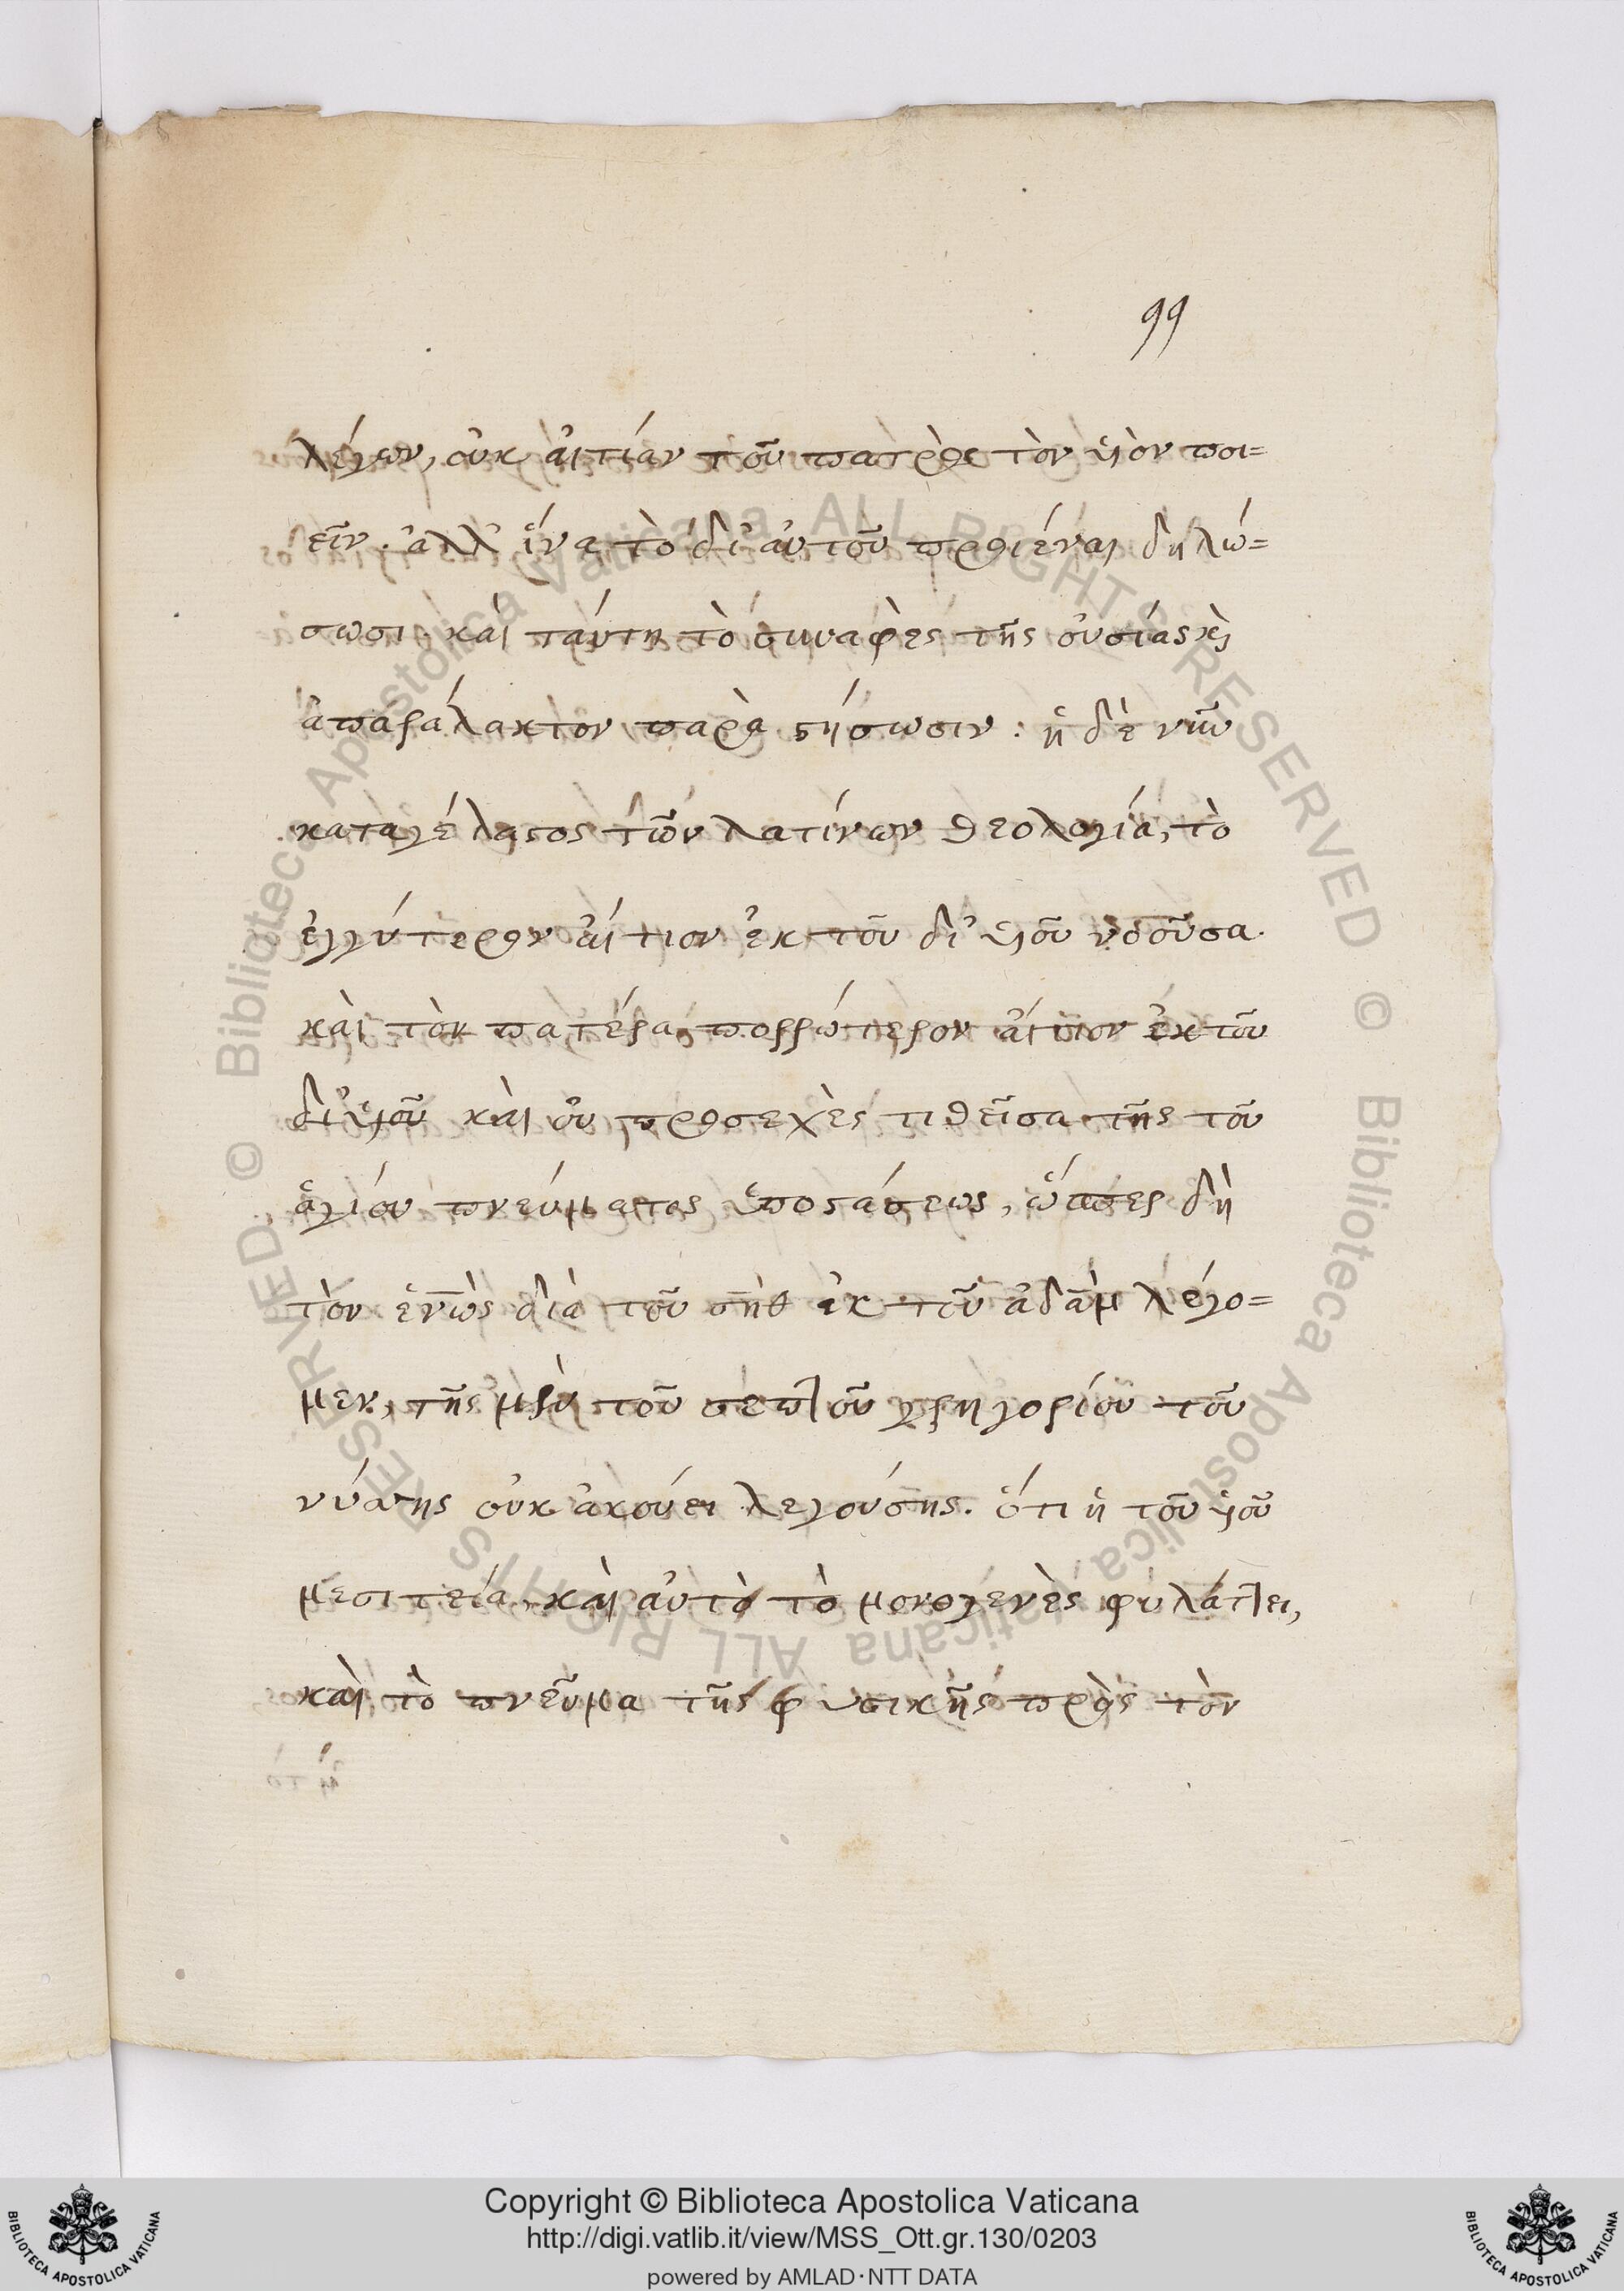 99
λέγων, οὐκ αἰτίαν τοῦ πατρὸς τὸν υἱὸν ποι=
εῖν. ἀλλ' ἵνα τὸ δι' αὐτοῦ προϊέναι δηλώ=
σωσι. καὶ ταύτη τὸ συναφὲς τῆς οὐσίας κὶ
ἀπαράλακτον παραστήσωσιν : ἡ δὲ νῦν
καταγέλαστος τῶν λατίνων θεολογία, τὸ
ἐγγύτερον αἴτιον ἐκ τοῦ δι' υἱοῦ νοοῦσα.
καὶ τὸν πατέρα πορρώτερον αἴτιον ἐκ τοῦ
δι' υἱοῦ καὶ οὐ προσεχὲς τιθεῖσα τῆς τοῦ
ἁγίου πνεύματος ὑποστάσεως, ὥσπερ δὴ
τὸν ἑνὼς διὰ τοῦ σὴθ ἐκ τοῦ ἀδὰμ λέγο=
μεν, τῆς μὲν τοῦ σεπτοῦ γρηγορίου τοῦ
νύσης οὐκ ἀκούει λεγούσης. ὅτι ἡ τοῦ υἱοῦ
μεσιτεία, καὶ αὐτὸ τὸ μονογενὲς φυλάττει,
καὶ τὸ πνεῦμα τῆς φυσικῆς πρὸς τὸν
Copyright © Biblioteca Apostolica Vaticana
http://digi.vatlib.it/view/MSS_Ott.gr.130/0203
powered by AMLAD·NTT DATA
BIBLIOTECA APOSTOLICA VATICANA
BIBLIOTECA APOSTOLICA VATICANA
© Biblioteca Apostolica Vaticana ALL RIGHTS RESERVED
© Biblioteca Apostolica Vaticana ALL RIGHTS RESERVED